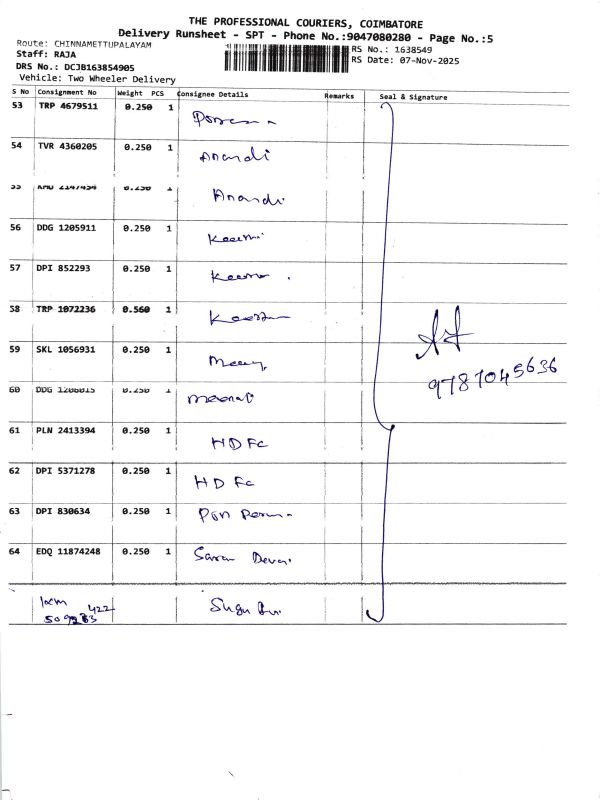 THE PROFESSIONAL COURIERS, COIMBATORE
Delivery Runsheet - SPT - Phone No.:9047080280 - Page No.:5
Route: CHINNAMETTUPALAYAM
RS No.: 1638549
Staff: RAJA
RS Date: 07-Nov-2025
DRS No.: DCJB163854905
Vehicle: Two Wheeler Delivery
S No Consignment No Weight PCS Consignee Details Remarks Seal & Signature
53 TRP 4679511 0.250 1
54 TVR 4360205 0.250 1 Anandi
55 0.250 1 Anandi
56 DDG 1205911 0.250 1
57 DPI 852293 0.250 1
58 TRP 1072236 0.560 1
59 SKL 1056931 0.250 1
9787045636
60 DDG 0.250 1
61 PLN 2413394 0.250 1 HDFC
62 DPI 5371278 0.250 1 HDFC
63 DPI 830634 0.250 1 Pon
64 EDQ 11874248 0.250 1
422